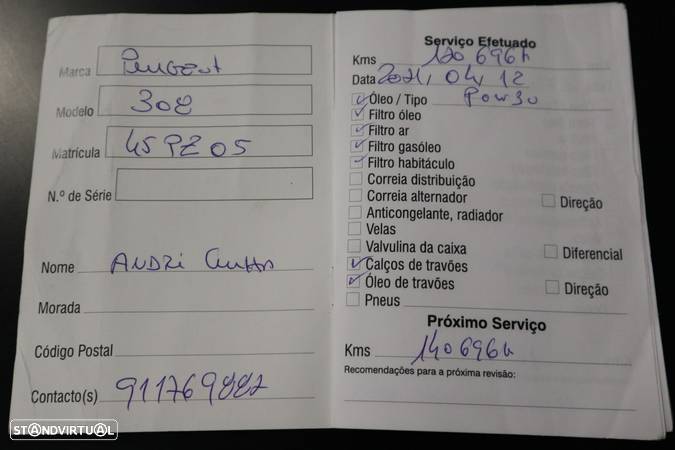 Marca Peugeot
Modelo 308
Matrícula 45 PZ 05
N.º de Série
Nome ANDRÉ
Morada
Código Postal
Contacto(s) 911769882
Serviço Efetuado
Kms 120 696
Data 2021, 04, 12
Óleo / Tipo
Filtro óleo
Filtro ar
Filtro gasóleo
Filtro habitáculo
Correia distribuição
Correia alternador Direção
Anticongelante, radiador
Velas
Valvulina da caixa Diferencial
Calços de travões
Óleo de travões Direção
Pneus
Próximo Serviço
Kms 140 696
Recomendações para a próxima revisão:
STANDVIRTUAL